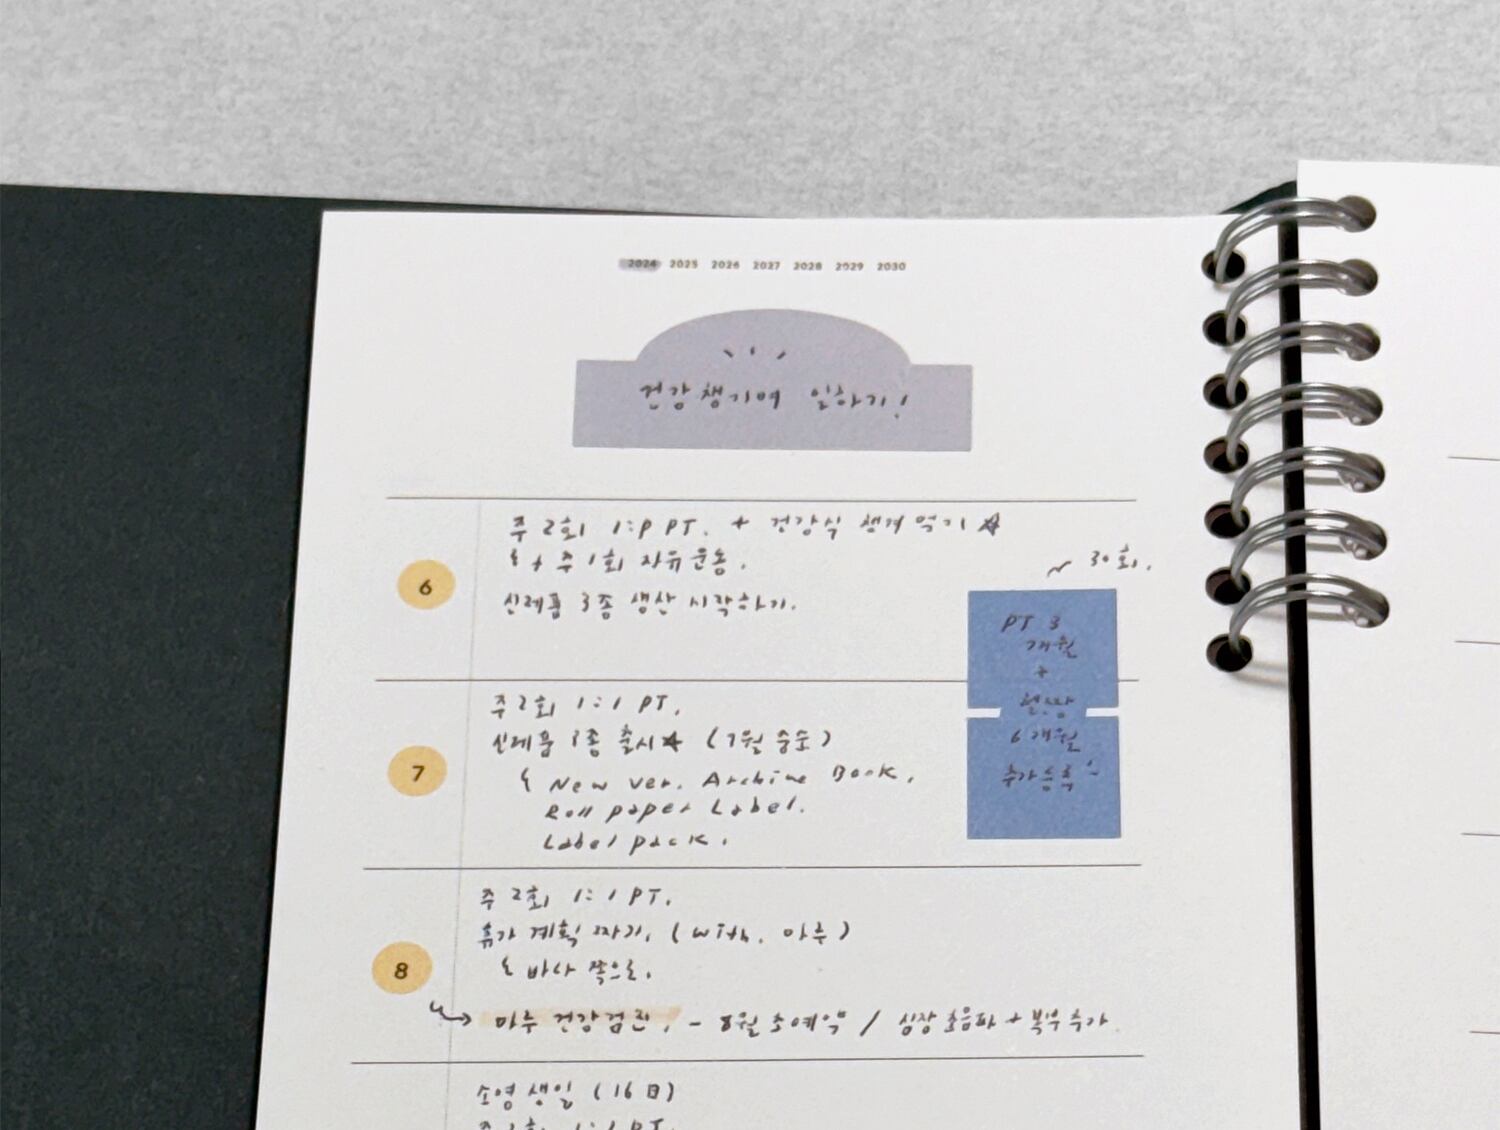 2024 2025 2026 2027 2028 2029 2030
건강챙기며 일하기!
주 2회 1:1 PT. + 건강식 챙겨 먹기
+ 주 1회 자유운동.
~ 30회.
6
신제품 3종 생산 시작하기.
PT 3
개월
+
헬스장
6개월
추가등록
주 2회 1:1 PT.
신제품 3종 출시 (7월 중순)
7
New ver. Archive Book.
Roll paper Label.
Label pack.
주 2회 1:1 PT.
휴가 계획 짜기. (with. 마루)
8
바다 쪽으로.
마루 건강검진. - 8월 초 예약 / 심장초음파 + 복부 추가
소영 생일 (16日)
주 2회 1:1 PT.